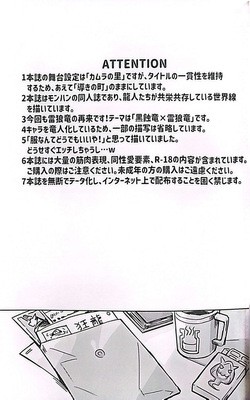 ATTENTION
1本誌の舞台設定は「カムラの里」ですが、タイトルの一貫性を維持
するため、あえて「導きの町」のままにしています。
2本誌はモンハンの同人誌であり、龍人たちが共栄共存している世界線
を描いています。
3今回も雷狼竜の再来です!テーマは「黒蝕竜×雷狼竜」です。
4キャラを竜人化しているため、一部の描写は省略しています。
5「服なんてどうでもいいや!」と思って描いていました。
どうせすぐエッチしちゃうし…w
6本誌には大量の筋肉表現、同性愛要素、R-18の内容が含まれています。
ご購入の際はご注意ください。未成年の方の購入はご遠慮ください。
7本誌を無断でデータ化し、インターネット上で配布することを固く禁じます。